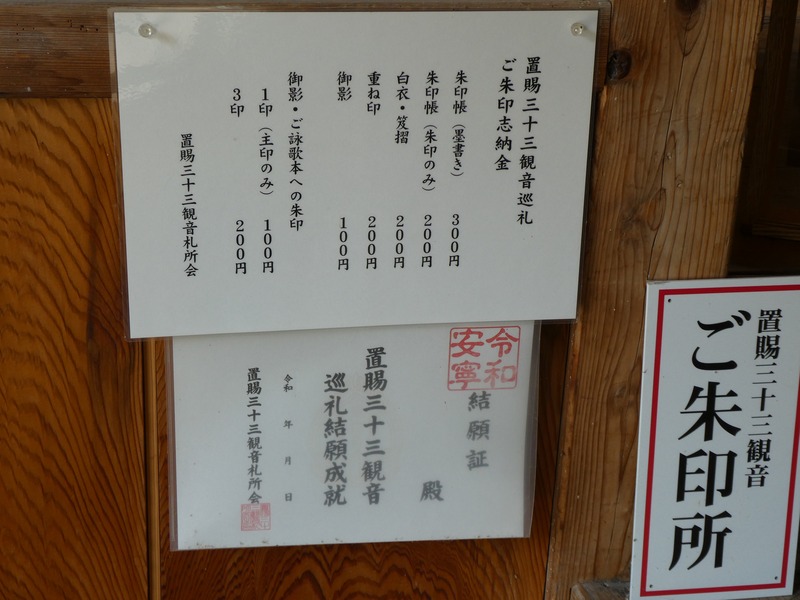 置賜三十三観音巡礼
ご朱印志納金
朱印帳（墨書き） 300円
朱印帳（朱印のみ） 200円
白衣・笈摺 200円
重ね印 200円
御影 100円
御影・ご詠歌本への朱印
1印（主印のみ） 100円
3印 200円
置賜三十三観音札所会
令和
安寧
結願証
殿
置賜三十三観音
巡礼結願成就
令和 年 月 日
置賜三十三観音札所会
置賜三十三観音
ご朱印所